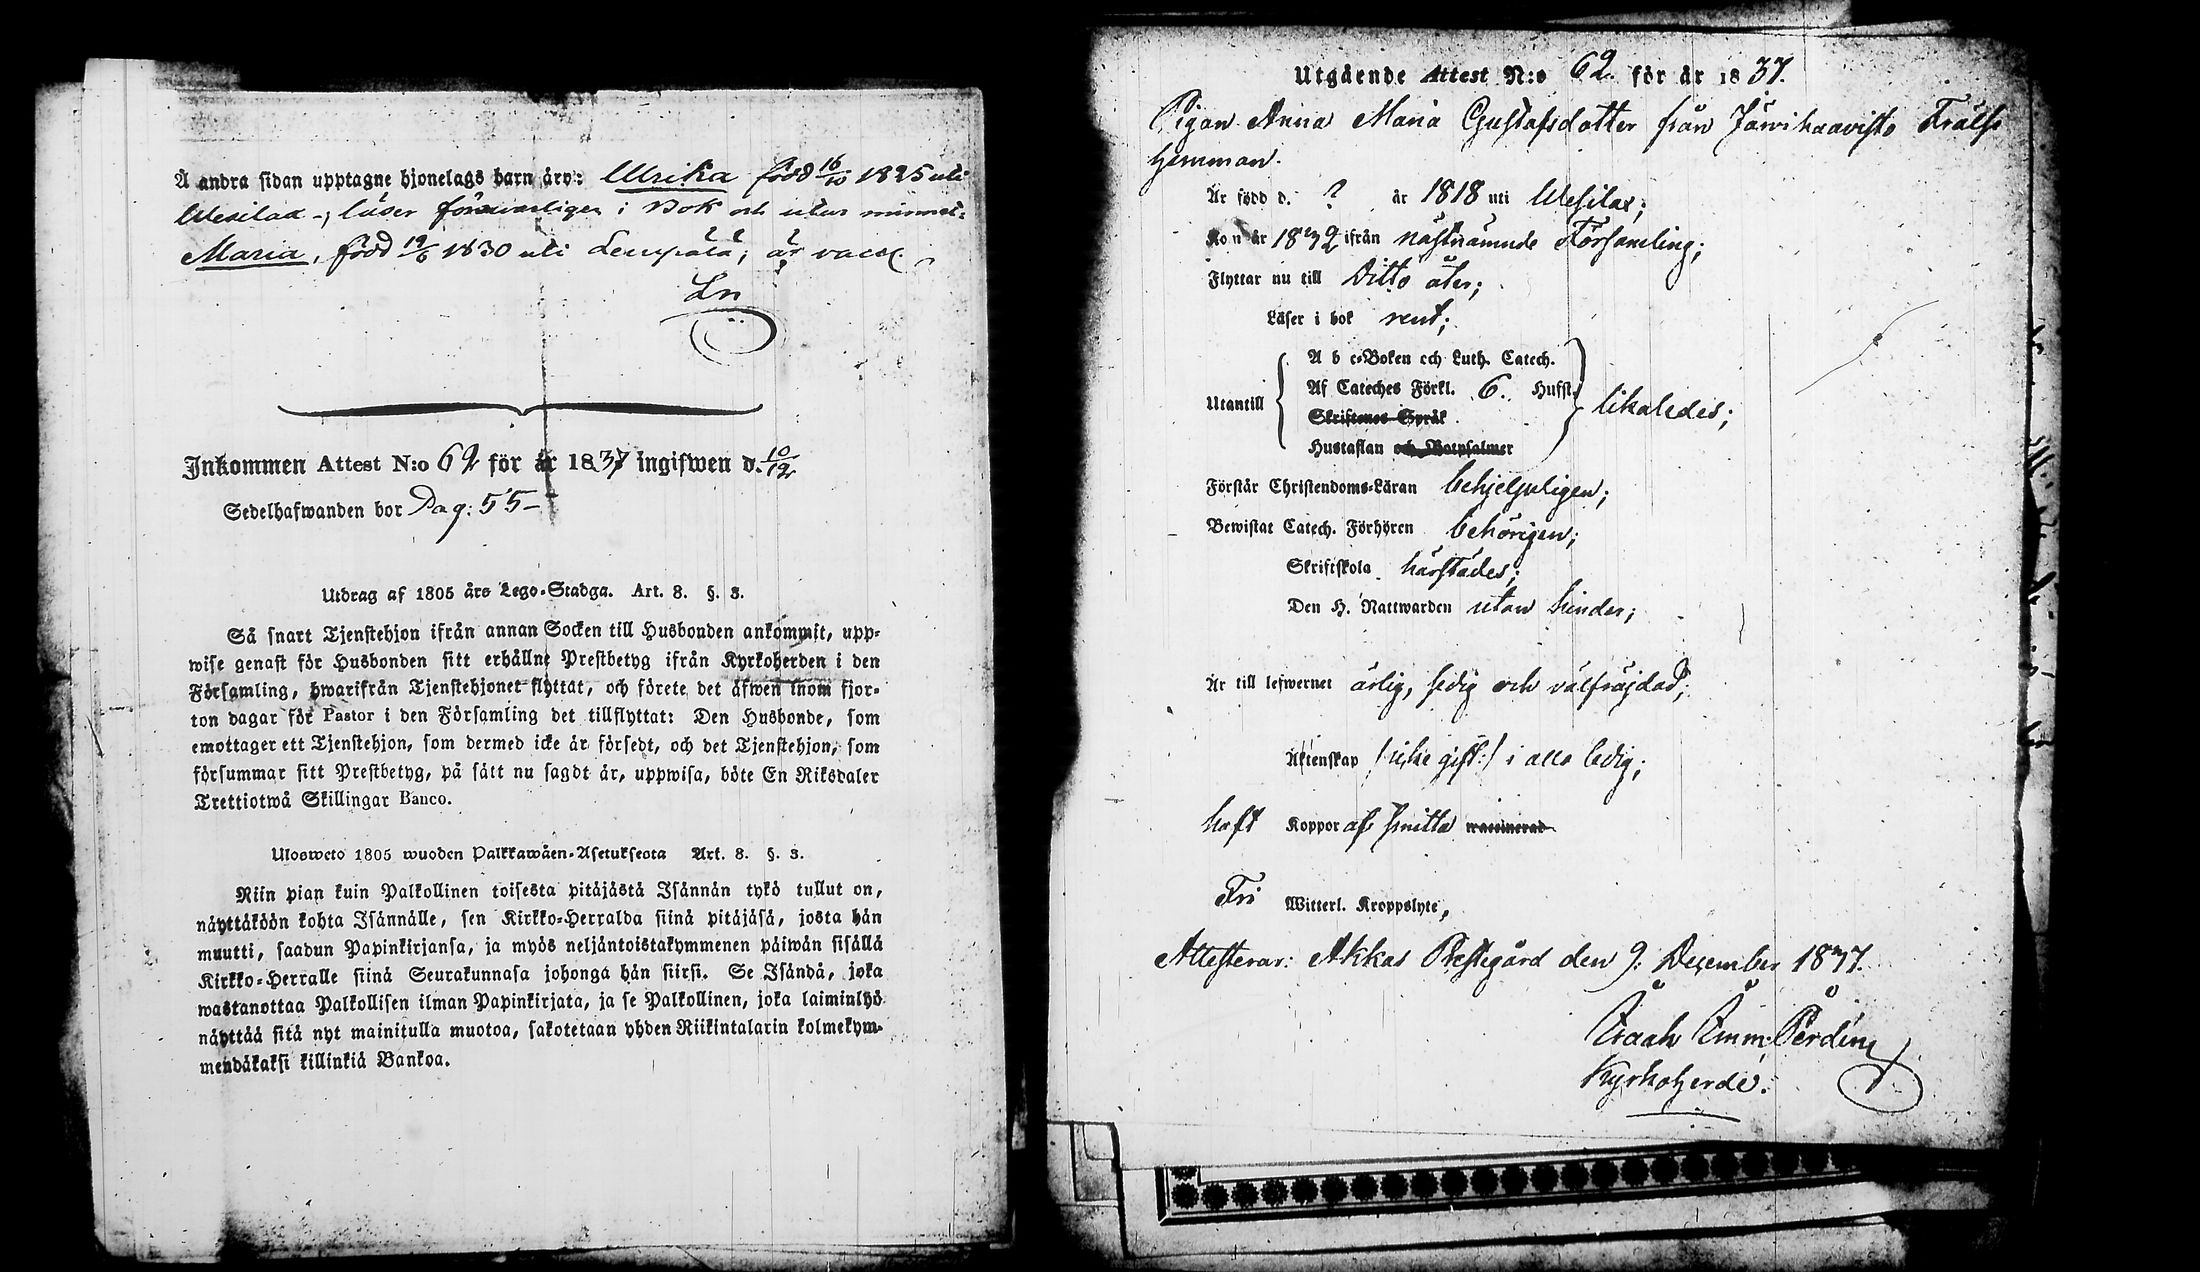 Å andra sidan upptagne hjonelags barn äro: Ulrika född 16/10 1825 uti
Wesilax -, läser försvarligen i Bok och utur minnet.
Maria, född 19/6 1830 uti Lempälä; är vacc.
Ln
Inkommen Attest N:o 62 för år 1837 ingifwen d. 10/12
Sedelhafwanden bor Pag: 55 -
Utdrag af 1805 års Lego-Stadga. Art. 8. §. 3.
Så snart Tjenstehjon ifrån annan Socken till Husbonden ankommit, upp-
wise genast för Husbonden sitt erhållne Prestbetyg ifrån Kyrkoherden i den
Församling, hwarifrån Tjenstehjonet flyttat, och förete det äfwen inom fjor-
ton dagar för Pastor i den Församling det tillflyttat: Den Husbonde, som
emottager ett Tjenstehjon, som dermed icke är försedt, och det Tjenstehjon, som
försummar sitt Prestbetyg, på sätt nu sagdt är, uppwisa, böte En Riksdaler
Trettiotwå Skillingar Banco.
Ulosweto 1805 wuoden Palkkawäen-Asetuksesta Art. 8. §. 3.
Niin pian kuin Palkollinen toisesta pitäjästä Isännän tykö tullut on,
näyttäköön kohta Isännälle, sen Kirkko-Herralda siinä pitäjäsä, josta hän
muutti, saadun Papinkirjansa, ja myös neljäntoistakymmenen päiwän sisällä
Kirkko-Herralle siinä Seurakunnasa johonga hän siirsi. Se Isändä, joka
wastanottaa Palkollisen ilman Papinkirjata, ja se Palkollinen, joka laiminlyö
näyttää sitä nyt mainitulla muotoa, sakotetaan yhden Riikintalarin kolmekym-
mendäkaksi killinkiä Bankoa.
Utgående Attest N:o 62. för år 1837.
Pigan Anna Maria Gustafsdotter från Järvihaavisto Frälse
hemman.
Är född d. ? år 1818 uti Wesilax;
Kom år 1832 ifrån nästnämnde Församling;
Flyttar nu till Ditto åter;
Läser i bok rent;
Utantill
A b c-Boken och Luth. Catech.
Af Cateches Förkl. 6. Hufst.
Skriftenes Språk
Hustaflan och Botpsalmer
likaledes;
Förstår Christendoms-Läran behjelpligen;
Bewistat Catech. Förhören behörigen;
Skriftskola härstädes;
Den H. Nattwarden utan hinder;
Är till lefwernet ärlig, sedig och välfräjdad;
Äktenskap /:icke gift:/ i alla ledig;
haft Koppor af smitta waccinerad
Fri Witterl. Kroppslyte,
Attesterar: Akkas Prestegård den 9. December 1837.
Isaah Emm: Perdén
Kyrkoherde.